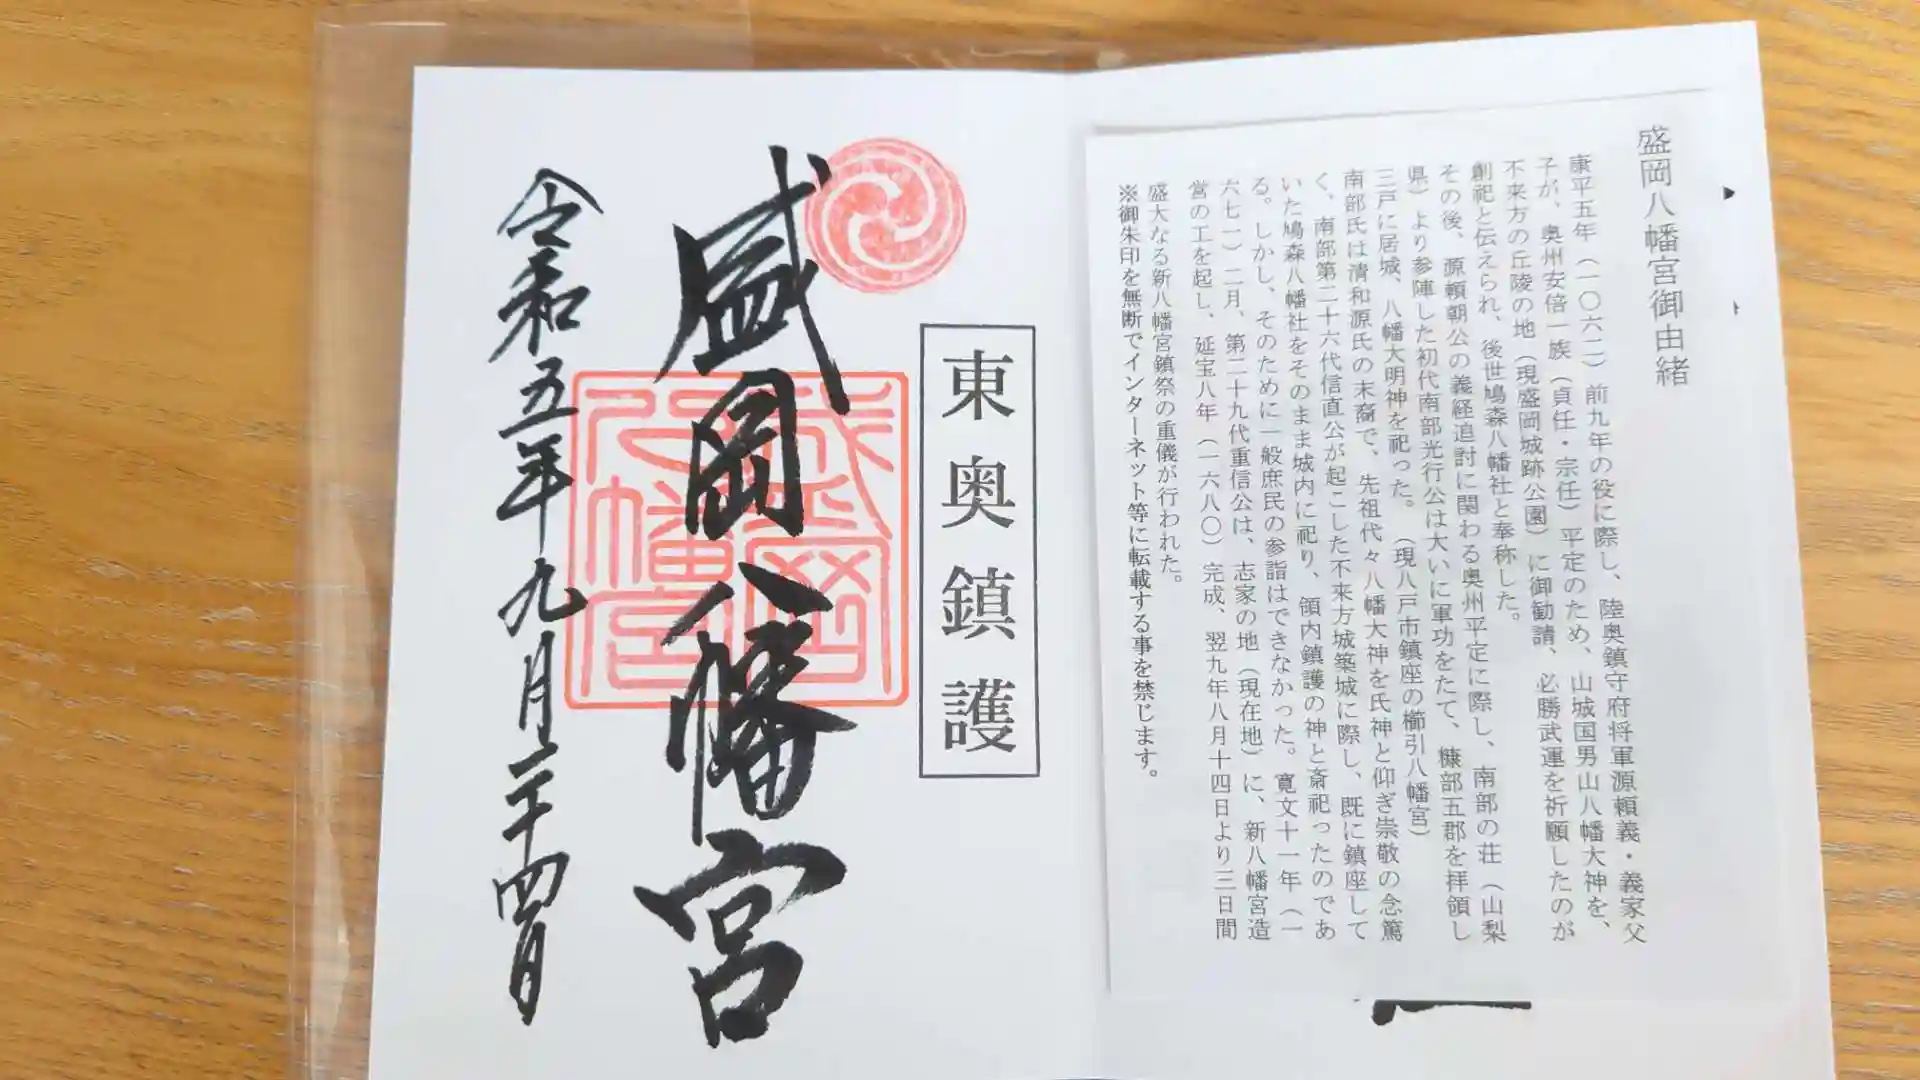 盛岡八幡宮御由緒
康平五年（一〇六二）前九年の役に際し、陸奥鎮守府将軍源頼義・義家父
子が、奥州安倍一族（貞任・宗任）平定のため、山城国男山八幡大神を、
不来方の丘陵の地（現盛岡城跡公園）に御勧請、必勝武運を祈願したのが
創祀と伝えられ、後世鳩森八幡社と奉称した。
その後、源頼朝公の義経追討に関わる奥州平定に際し、南部の荘（山梨
県）より参陣した初代南部光行公は大いに軍功をたて、糠部五郡を拝領し
三戸に居城、八幡大明神を祀った。（現八戸市鎮座の櫛引八幡宮）
南部氏は清和源氏の末裔で、先祖代々八幡大神を氏神と仰ぎ崇敬の念篤
く、南部第二十六代信直公が起こした不来方城築城に際し、既に鎮座して
いた鳩森八幡社をそのまま城内に祀り、領内鎮護の神と斎祀ったのであ
る。しかし、そのために一般庶民の参詣はできなかった。寛文十一年（一
六七一）二月、第二十九代重信公は、志家の地（現在地）に、新八幡宮造
営の工を起し、延宝八年（一六八〇）完成、翌九年八月十四日より三日間
盛大なる新八幡宮鎮祭の重儀が行われた。
※御朱印を無断でインターネット等に転載する事を禁じます。
東奥鎮護
盛岡八幡宮
盛岡八幡宮
令和五年九月二十四日